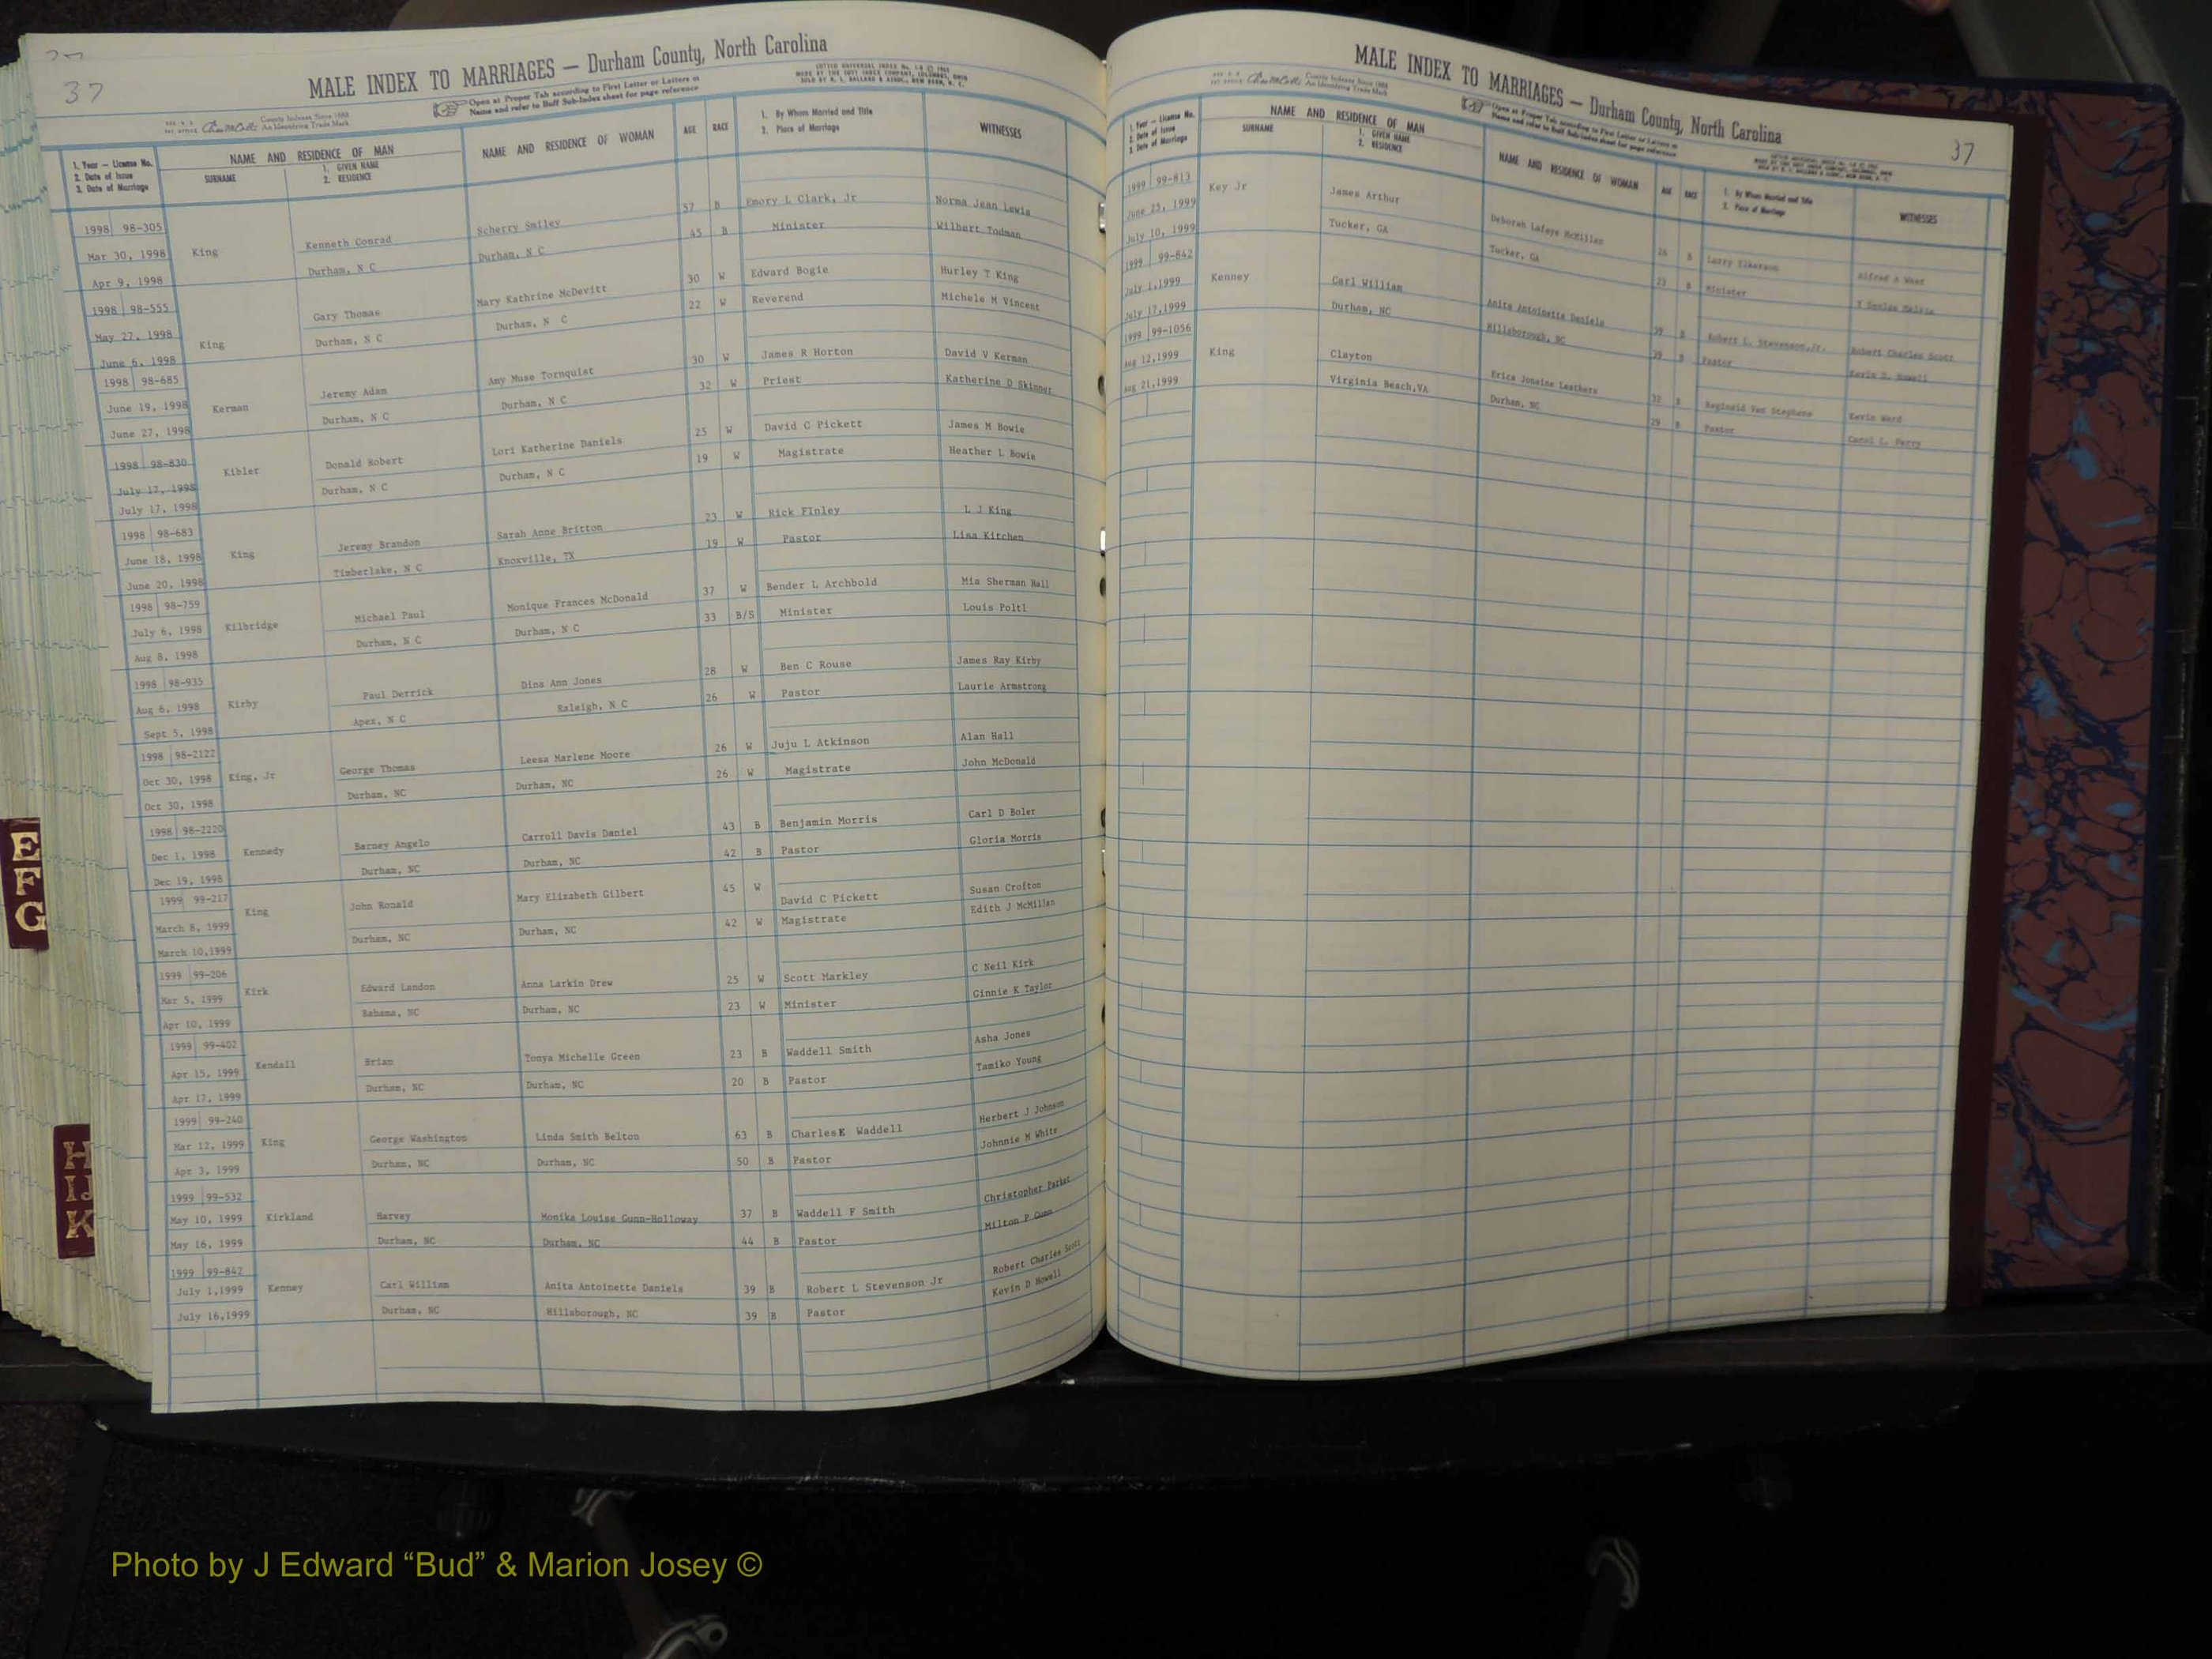 37
MALE INDEX TO MARRIAGES — Durham County, North Carolina
Open at Proper Tab according to First Letter or Letters of
Name and refer to Buff Sub-Index sheet for page reference
County Indexes Since 1888
An Identifying Trade Mark
1. Year — License No.
2. Date of Issue
3. Date of Marriage
NAME AND RESIDENCE OF MAN
SURNAME
1. GIVEN NAME
2. RESIDENCE
NAME AND RESIDENCE OF WOMAN
AGE
RACE
1. By Whom Married and Title
2. Place of Marriage
WITNESSES
1998 98-305
Mar 30, 1998 King Kenneth Conrad Scherry Smiley B Emory L Clark, Jr Norma Jean Lewis
Apr 9, 1998 Durham, N C Durham, N C 45 B Minister Wilbert Todman
1998 98-555
May 27, 1998 King Gary Thomas Mary Kathrine McDevitt 30 W Edward Bogie Hurley T King
June 6, 1998 Durham, N C Durham, N C 22 W Reverend Michele M Vincent
1998 98-685
June 19, 1998 Kerman Jeremy Adam Amy Muse Tornquist 30 W James R Horton David V Kerman
June 27, 1998 Durham, N C Durham, N C 32 W Priest Katherine D Skinner
1998 98-830
July 17, 1998 Kibler Donald Robert Lori Katherine Daniels 25 W David C Pickett James M Bowie
July 17, 1998 Durham, N C Durham, N C 19 W Magistrate Heather L Bowie
1998 98-683
June 18, 1998 King Jeremy Brandon Sarah Anne Britton 23 W Rick FInley L J King
June 20, 1998 Timberlake, N C Knoxville, TX 19 W Pastor Lisa Kitchen
1998 98-759
July 6, 1998 Kilbridge Michael Paul Monique Frances McDonald 37 W Bender L Archbold Mia Sherman Hall
Aug 8, 1998 Durham, N C Durham, N C 33 B/S Minister Louis Poltl
1998 98-935
Aug 6, 1998 Kirby Paul Derrick Dina Ann Jones 28 W Ben C Rouse James Ray Kirby
Sept 5, 1998 Apex, N C Raleigh, N C 26 W Pastor Laurie Armstrong
1998 98-2122
Oct 30, 1998 King, Jr George Thomas Leesa Marlene Moore 26 W Juju L Atkinson Alan Hall
Oct 30, 1998 Durham, NC Durham, NC 26 W Magistrate John McDonald
1998 98-2220
Dec 1, 1998 Kennedy Barney Angelo Carroll Davis Daniel 43 B Benjamin Morris Carl D Boler
Dec 19, 1998 Durham, NC Durham, NC 42 B Pastor Gloria Morris
1999 99-217
March 8, 1999 King John Ronald Mary Elizabeth Gilbert 45 W David C Pickett Susan Crofton
March 10,1999 Durham, NC Durham, NC 42 W Magistrate Edith J McMillan
1999 99-206
Mar 5, 1999 Kirk Edward Landon Anna Larkin Drew 25 W Scott Markley C Neil Kirk
Apr 10, 1999 Bahama, NC Durham, NC 23 W Minister Ginnie K Taylor
1999 99-402
Apr 15, 1999 Kendall Brian Tonya Michelle Green 23 B Waddell Smith Asha Jones
Apr 17, 1999 Durham, NC Durham, NC 20 B Pastor Tamiko Young
1999 99-240
Mar 12, 1999 King George Washington Linda Smith Belton 63 B Charles E Waddell Herbert J Johnson
Apr 3, 1999 Durham, NC Durham, NC 50 B Pastor Johnnie M White
1999 99-532
May 10, 1999 Kirkland Harvey Monika Louise Gunn-Holloway 37 B Waddell F Smith Christopher Parker
May 16, 1999 Durham, NC Durham, NC 44 B Pastor Milton P Gunn
1999 99-842
July 1,1999 Kenney Carl William Anita Antoinette Daniels 39 B Robert L Stevenson Jr Robert Charles Scott
July 16,1999 Durham, NC Hillsborough, NC 39 B Pastor Kevin D Howell
E
F
G
H
IJ
K
MALE INDEX TO MARRIAGES — Durham County, North Carolina
37
Open at Proper Tab according to First Letter or Letters of
Name and refer to Buff Sub-Index sheet for page reference
County Indexes Since 1888
An Identifying Trade Mark
1. Year — License No.
2. Date of Issue
3. Date of Marriage
NAME AND RESIDENCE OF MAN
SURNAME
1. GIVEN NAME
2. RESIDENCE
NAME AND RESIDENCE OF WOMAN
AGE
RACE
1. By Whom Married and Title
2. Place of Marriage
WITNESSES
1999 99-813
June 25, 1999 Key Jr James Arthur Deborah Lafaye McMillen B Larry Alfred A West
July 10, 1999 Tucker, GA Tucker, GA 23 B Minister
1999 99-842
July 1,1999 Kenney Carl William Anita Antoinette Daniels 39 B Robert L. Stevenson,Jr. Robert Charles Scott
July 17,1999 Durham, NC Hillsborough, NC 39 B Pastor Kevin D. Howell
1999 99-1056
Aug 12,1999 King Clayton Erica Jonaise Leathers 32 B Reginald Van Stephens Kevin Ward
Aug 21,1999 Virginia Beach,VA Durham, NC 29 B Pastor Carol L. Perry
Photo by J Edward “Bud” & Marion Josey ©